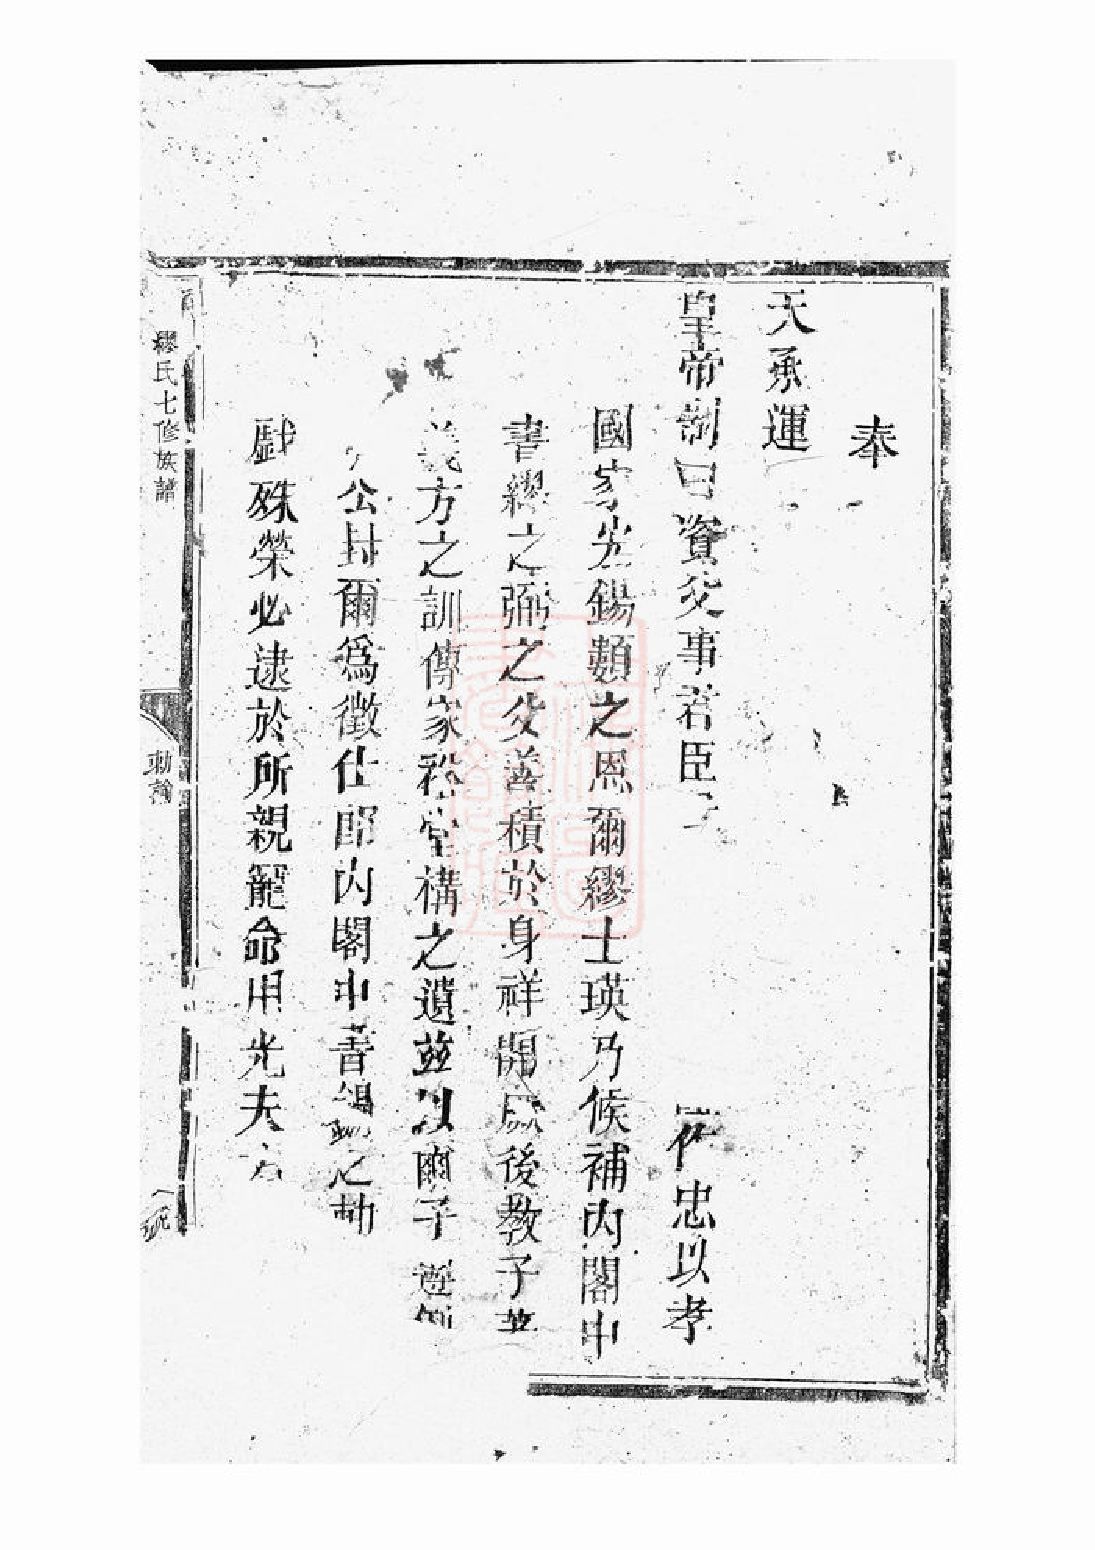 奉
天承運
皇帝制曰資父事君臣 作忠以孝
國家 錫類之恩爾繆士瑛乃候補內閣中
書繆之弼之父善積於身祥開厥後教子
義方之訓傳家 堂構之遺茲以爾子遵例
公封爾爲徵仕郎內閣中書錫之勅
戲殊榮必逮於所親寵命用光夫
繆氏七修族譜
勅翰